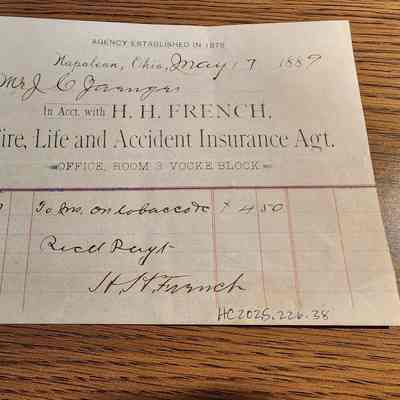 AGENCY ESTABLISHED IN 1878.
Napoleon, Ohio, May 17 1889
Mr J C
In Acct. with H. H. FRENCH,
ire, Life and Accident Insurance Agt.
OFFICE, ROOM 3 VOCKE BLOCK
To Ins. on tobacco &c 4 50
Rec'd Payt
H H French
HC2025.226.38